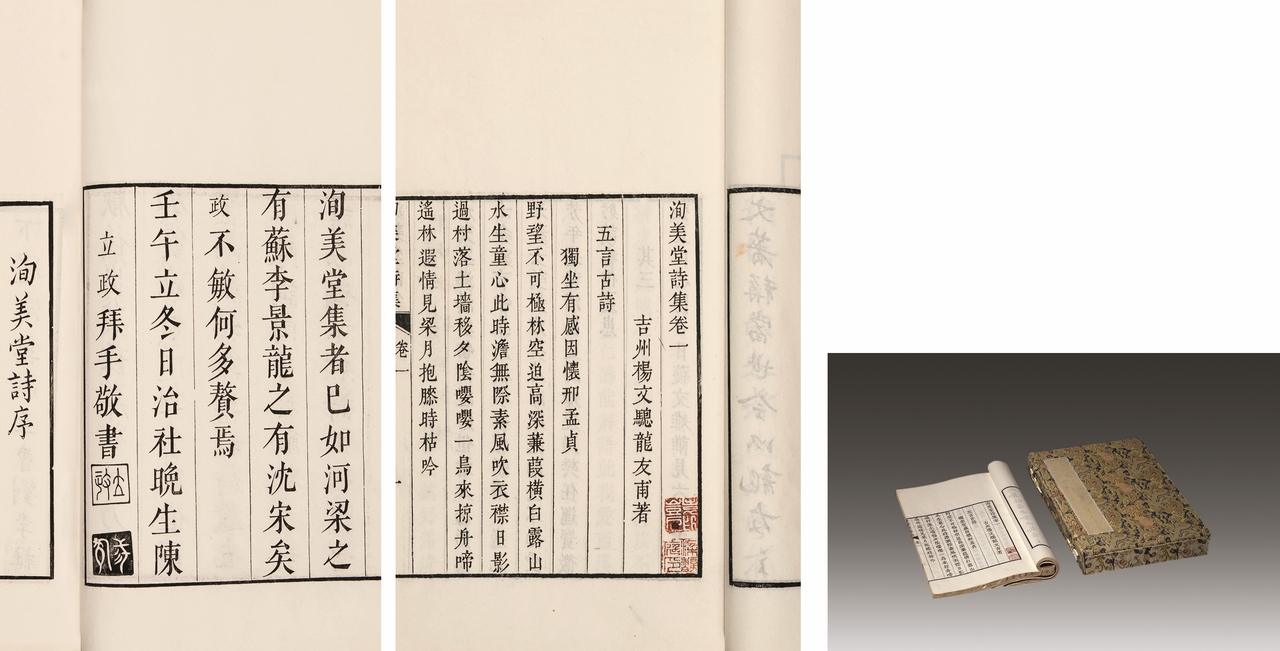 洵美堂集者已如河梁之
有蘇李景龍之有沈宋矣
政不敏何多贅焉
壬午立冬日治社晚生陳
立政拜手敬書
洵美堂詩序
洵美堂詩集卷一
吉州楊文驄龍友甫著
五言古詩
獨坐有感因懷邢孟貞
野望不可極林空迫高深蒹葭橫白露山
水生童心此時澹無際素風吹衣襟日影
過村落土墻移夕陰嚶嚶一鳥來掠舟啼
遙林遐情見梁月抱膝時枯吟
卷一